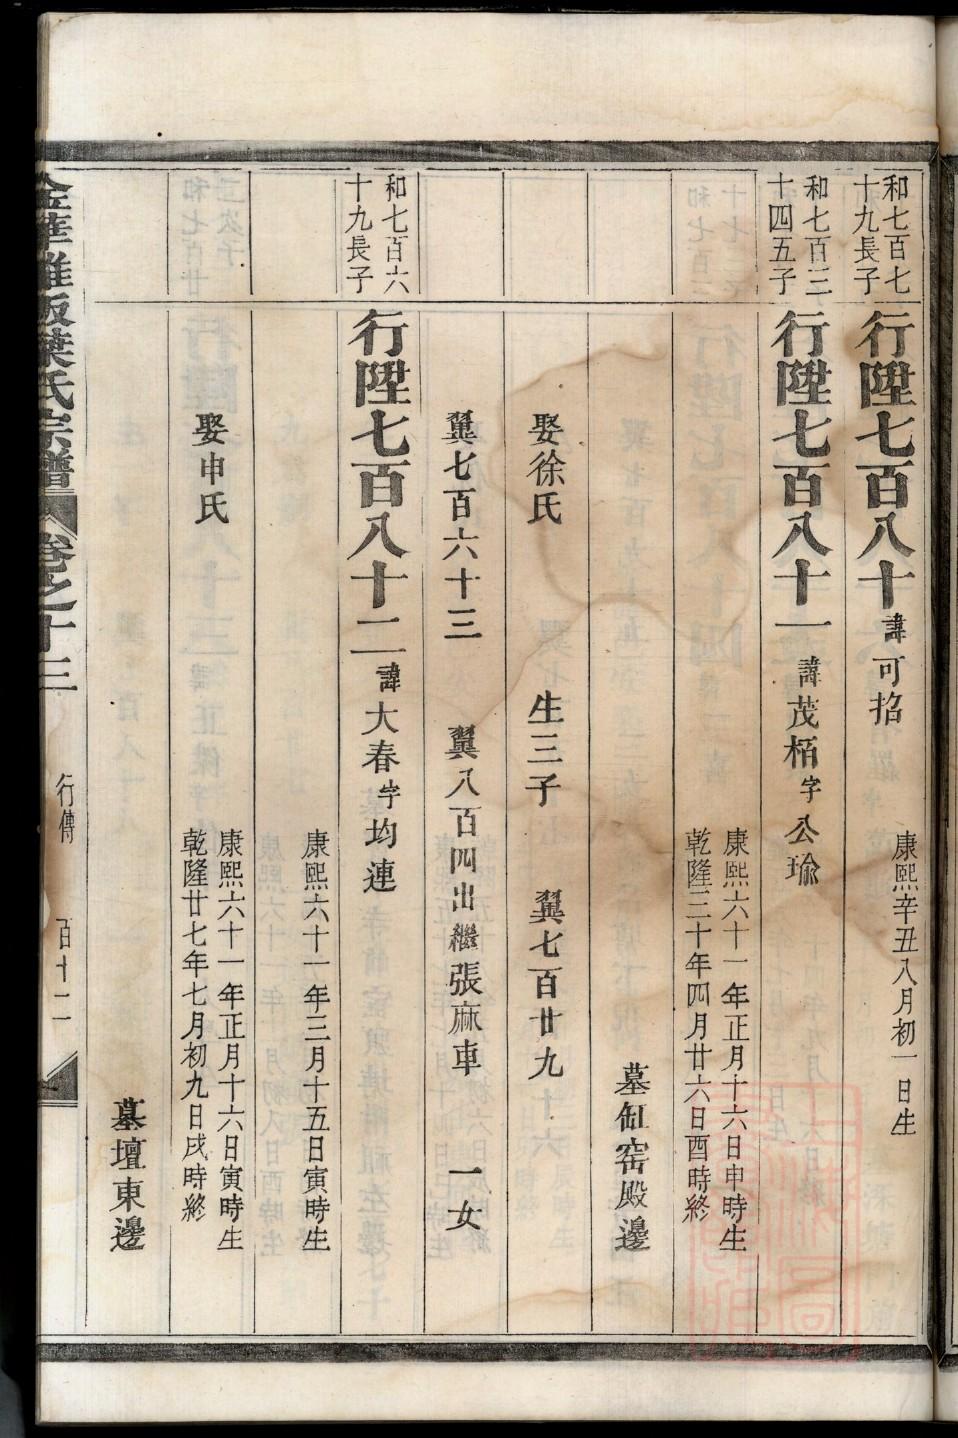 和七百七
十九長子
行陞七百八十諱可招
康熙辛丑八月初一日生
和七百三
十四五子
行陞七百八十一諱茂栢字公瑜
康熙六十一年正月十六日申時生
乾隆三十年四月廿六日酉時終
墓缸窑殿邊
娶徐氏
生三子
翼七百廿九
翼七百六十三
翼八百四出繼張麻車
一女
和七百六
十九長子
行陞七百八十二諱大春字均連
康熙六十一年三月十五日寅時生
康熙六十一年正月十六日寅時生
乾隆廿七年七月初九日戌時終
娶申氏
墓壇東邊
金華雅畈葉氏宗譜
卷之十三
行傳
百十二